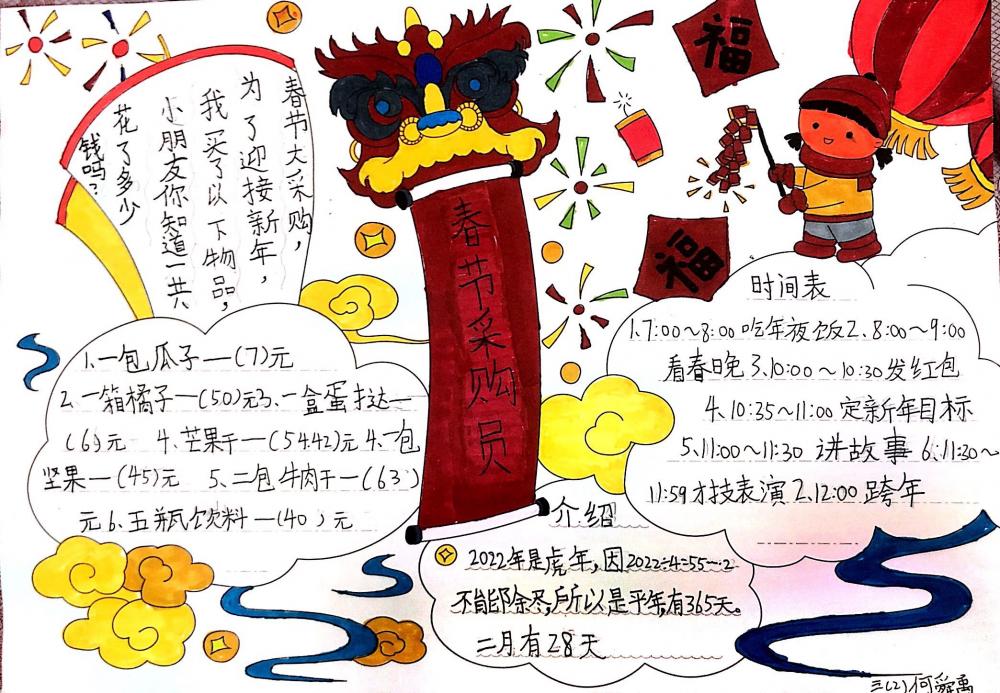 春节大采购，
为了迎接新年，
我买了以下物品，
小朋友你知道一共
花了多少
钱吗？
春节采购员
福
福
1.一包瓜子—(7)元
2.一箱橘子—(50)元3.一盒蛋挞—
(6)元 4.芒果干—(54.42)元 4.一包
坚果—(45)元 5.二包牛肉干—(63)
元6.五瓶饮料—(40)元
时间表
1.7:00~8:00吃年夜饭2.8:00~9:00
看春晚3.10:00~10:30发红包
4.10:35~11:00定新年目标
5.11:00~11:30讲故事6.11:30~
11:59才技表演2.12:00跨年
介绍
2022年是虎年,因2022÷4=55…2
不能,所以是平年,有365天。
二月有28天
三(2)何舜禹